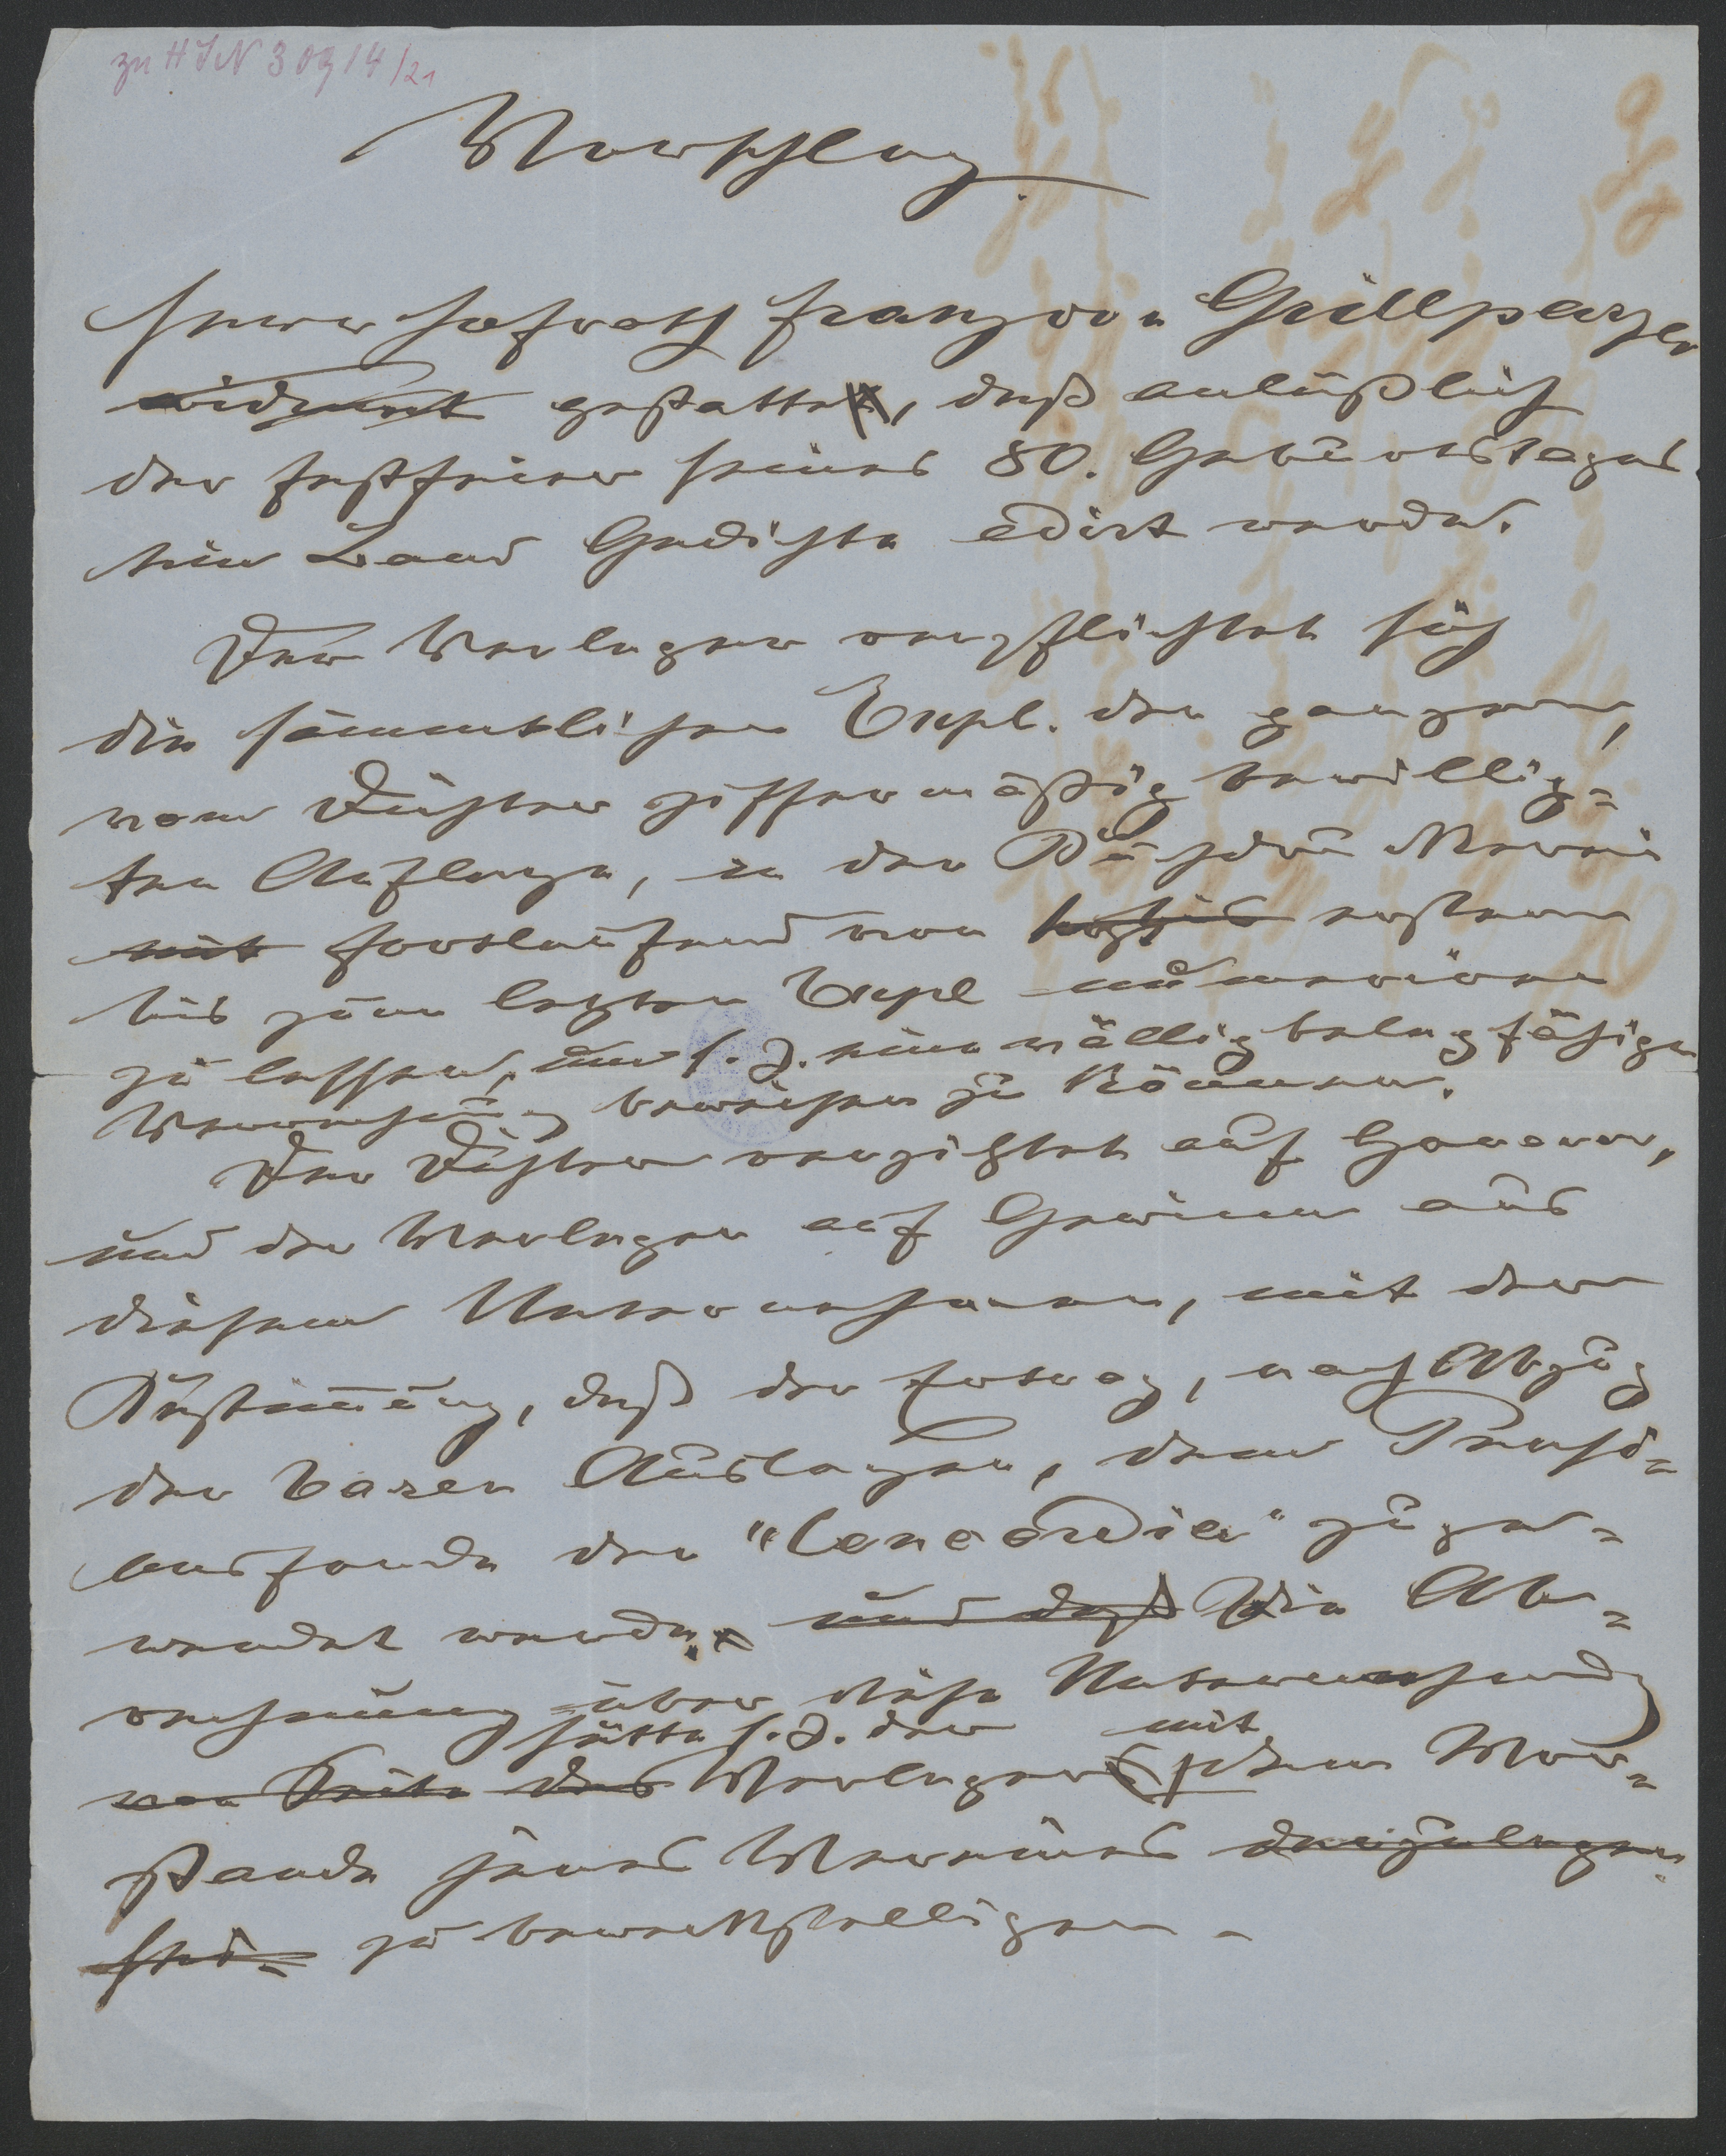 zu H I N 30914/21
Vorschlag.
Herr Hofrath Franz von Grillparzer
widmet gestattet, daß anläßlich
der Festfeier seines 80. Geburtstages
ein Band Gedichte edirt werde.
Der Verleger verpflichtet sich
die sämmtlichen Expl. der ganzen,
vom Dichter ziffermäßig bewillig-
ten Auflage, in der Buchdruckerei
mit fortlaufend von erstem
bis zum letzten Expl numeriren
zu lassen, um s. Z. eine völlig belegfähige
Verrechnung beweisen zu können.
Der Dichter verzichtet auf Honorar,
und der Verleger auf Gewinn aus
diesem Unternehmen, mit der
Bestimmung, daß der Ertrag, nach Abzug
der baren Auslagen, dem
der "Concordia" zuge-
wendet werde. und daß Die Ab-
rechnung über diese Unternehmung
hätte s. Z. der mit
von Seite des Verlegers dem Vor-
stande jenes Vereines
zu bewerkstelligen.